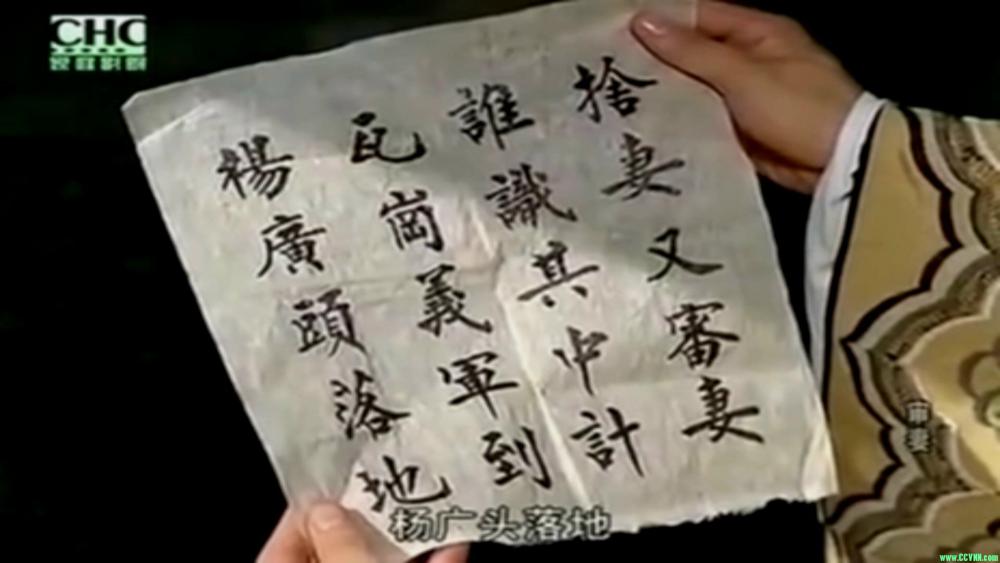 CHC
家庭影院
捨妻又審妻
誰識其中計
瓦崗義軍到
楊廣頭落地
審妻
杨广头落地
www.CCVHN.com